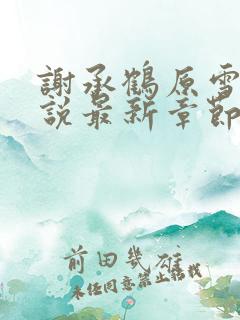 謝承鶴原雪
說最新章節
前田幾雄
未任同意禁止轉載